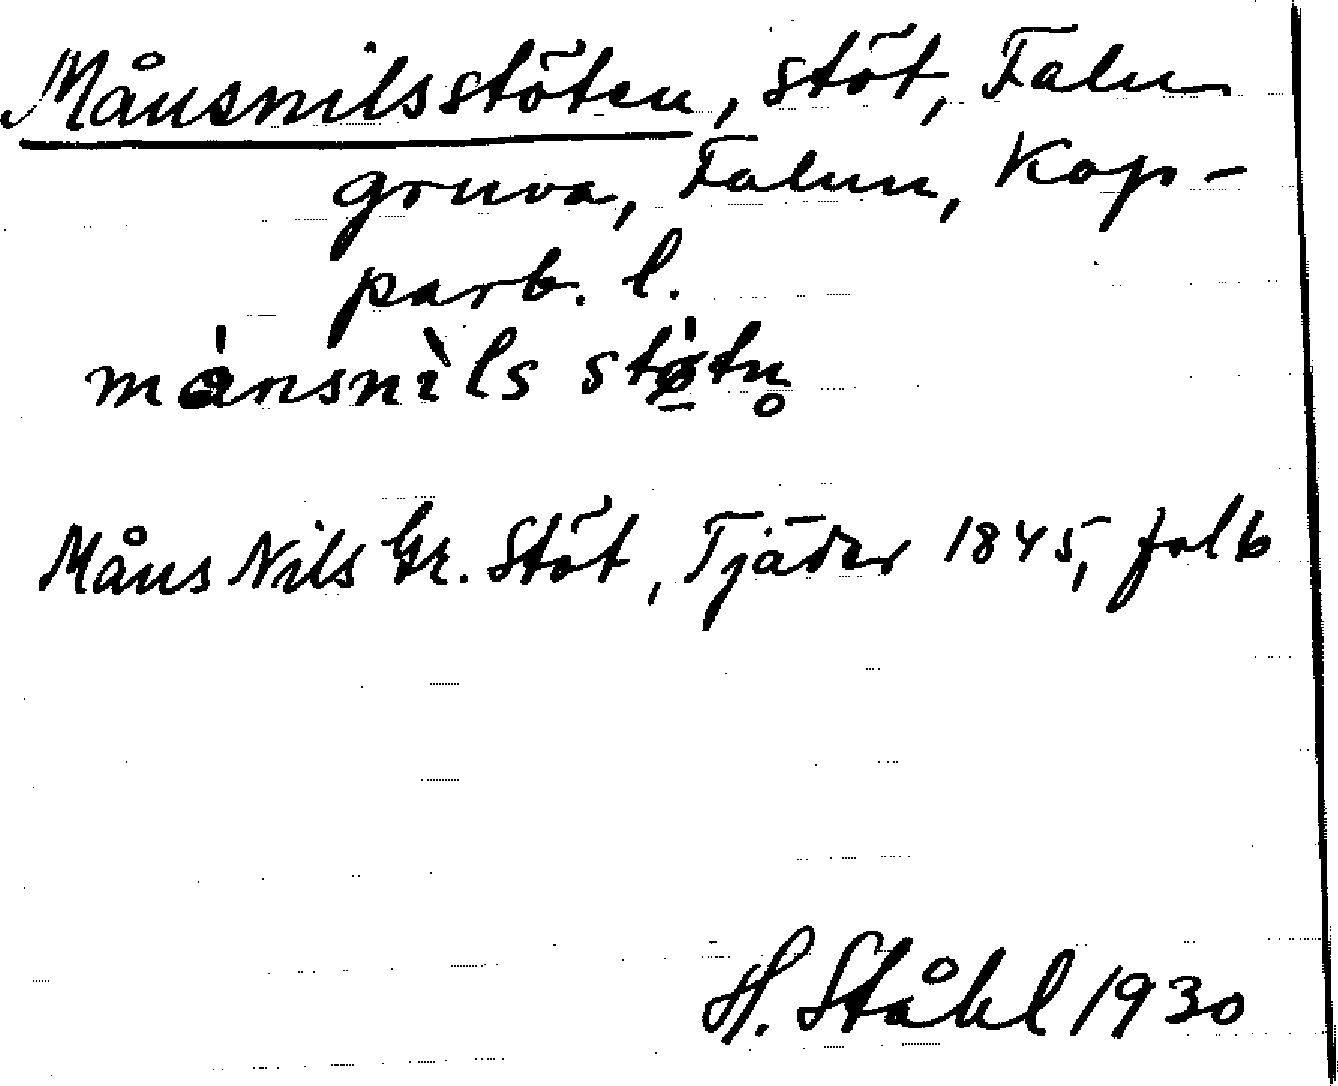 Månsnilsstöten, stöt, Falu
gruva, Falun, Kop-
parb. l.
månsnìls støtn̥
Måns Nils Gr. Stöt, Tjäder 1845, fol b
H. Ståhl 1930